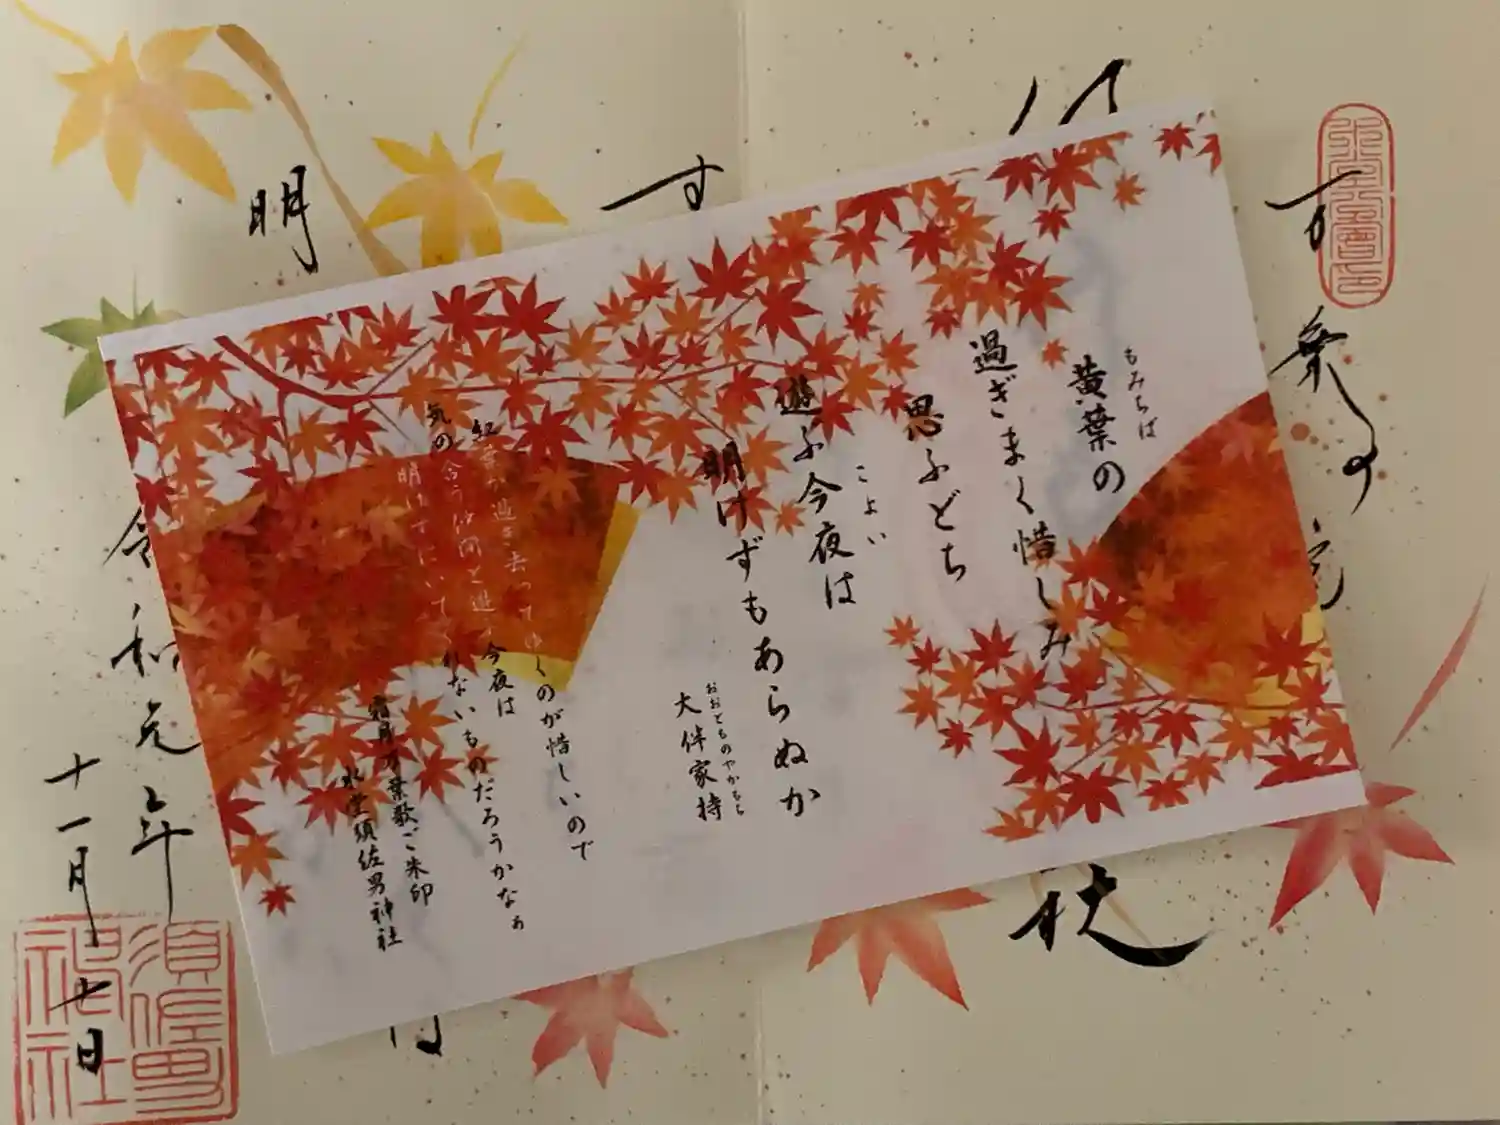 もみちば
黄葉の
過ぎまく惜しみ
思ふどち
こよい
遊ふ今夜は
明けずもあらぬか
おおとものやかもち
大伴家持
紅葉が過ぎ去ってゆくのが惜しいので
気の合う仲間と遊ぶ今夜は
明けずにいてくれないものだろうかなぁ
霜月万葉歌ご朱印
氷室須佐男神社
す
明
令和元年
十一月七日
須佐男
神社